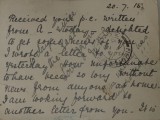 20.7.16
Received your p.c. written
from A - today - delighted
to get
I wrote a letter
yesterday. How unfortunate
have been so long without
news from anyone at home.
I am looking forward to
another letter from you. It is